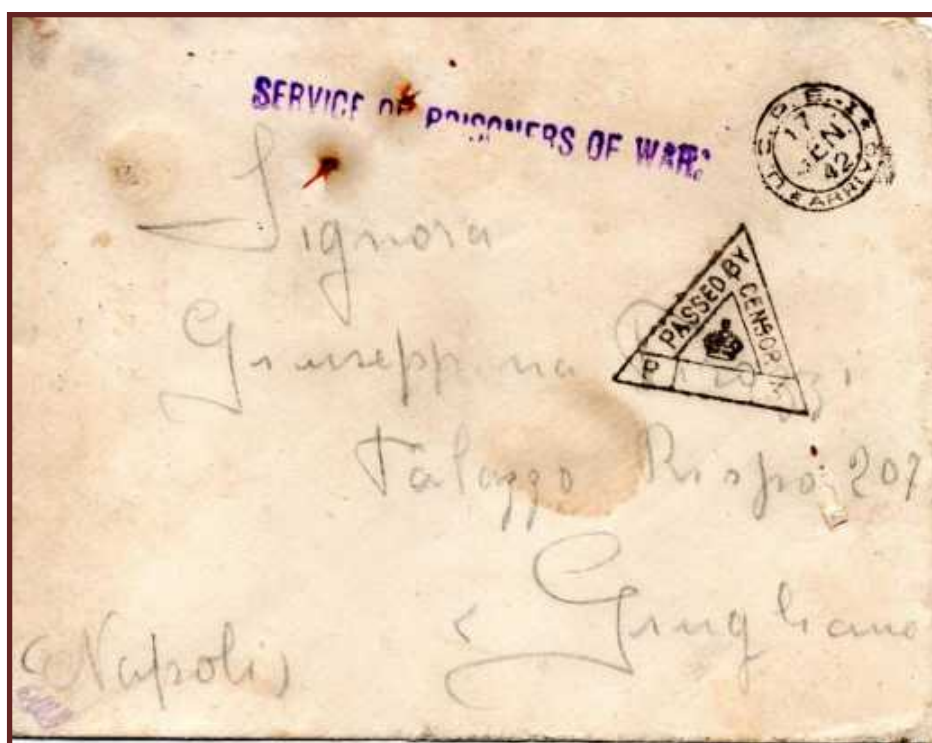 SERVICE OF PRISONERS OF WAR.
17
GEN
42
ARRIVO
PASSED BY
CENSOR
P
Signora
Giuseppina
Palazzo Rispo 207
Giugliano
(Napoli)